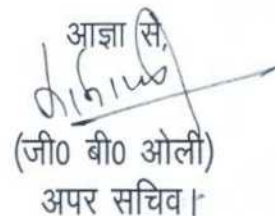 आज्ञा से,
(जी0 बी0 ओली)
अपर सचिव।